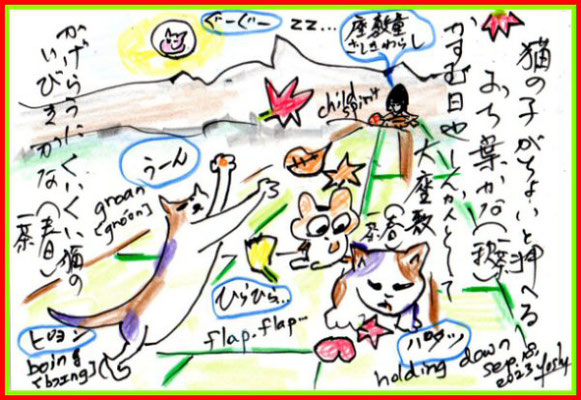 猫の子がちょいと押へる
おち葉かな(秋)
かすむ日やしんかんとして
大座敷(春)
一茶
座敷童
ざしきわらし
child spirit
ぐーぐー
zz...
かげらうにくいくい猫の
いびきかな(春日)
一茶
うーん
groan
ひらひら...
flap-flap...
boing
holding down
sep. 18.
2023 Yoshy